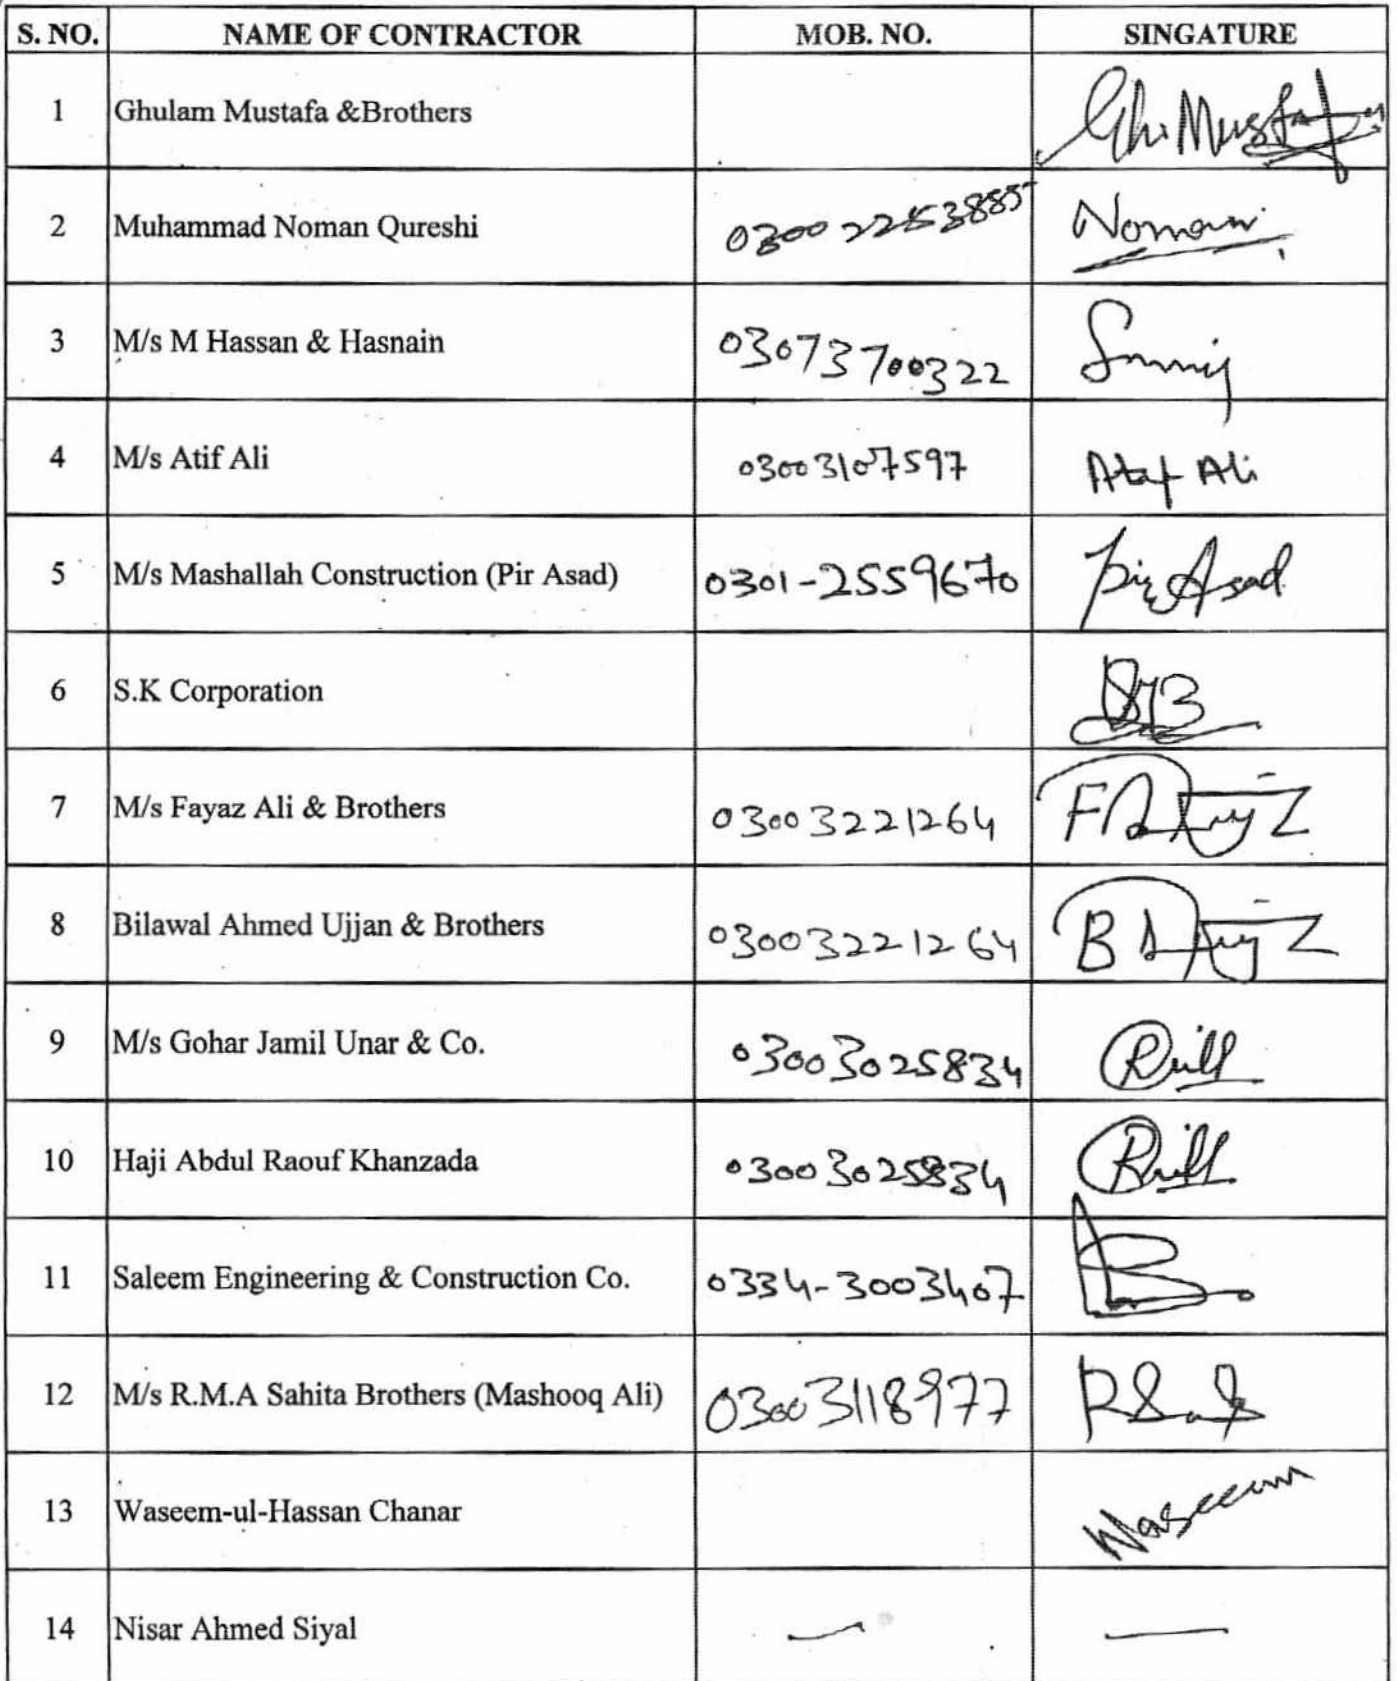 S. NO. NAME OF CONTRACTOR MOB. NO. SINGATURE
1 Ghulam Mustafa &Brothers Gh. Mustafa
2 Muhammad Noman Qureshi 03002253885 Noman
3 M/s M Hassan & Hasnain 03073700322
4 M/s Atif Ali 03003107597 Ataf Ali
5 M/s Mashallah Construction (Pir Asad) 0301-2559670 Pir Asad
6 S.K Corporation
7 M/s Fayaz Ali & Brothers 03003221264
8 Bilawal Ahmed Ujjan & Brothers 03003221264
9 M/s Gohar Jamil Unar & Co. 03003025834
10 Haji Abdul Raouf Khanzada 03003025834
11 Saleem Engineering & Construction Co. 0334-3003407
12 M/s R.M.A Sahita Brothers (Mashooq Ali) 03003118977
13 Waseem-ul-Hassan Chanar Waseem
14 Nisar Ahmed Siyal — —